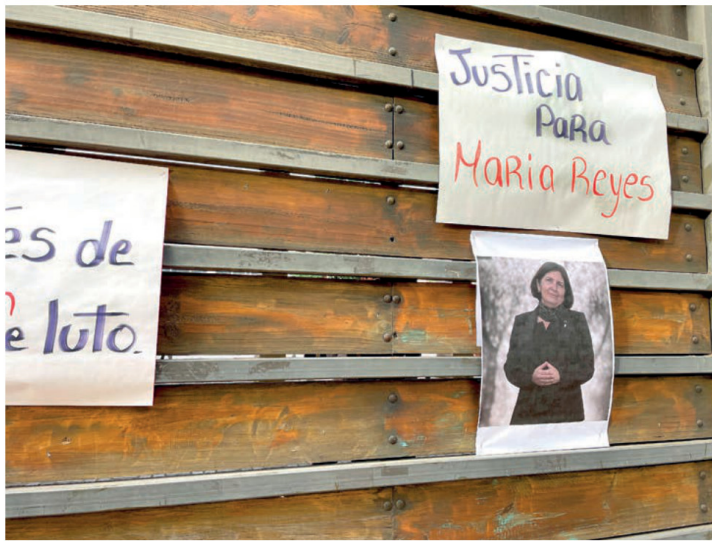 es de
e luto.
Justicia
Para
Maria Reyes